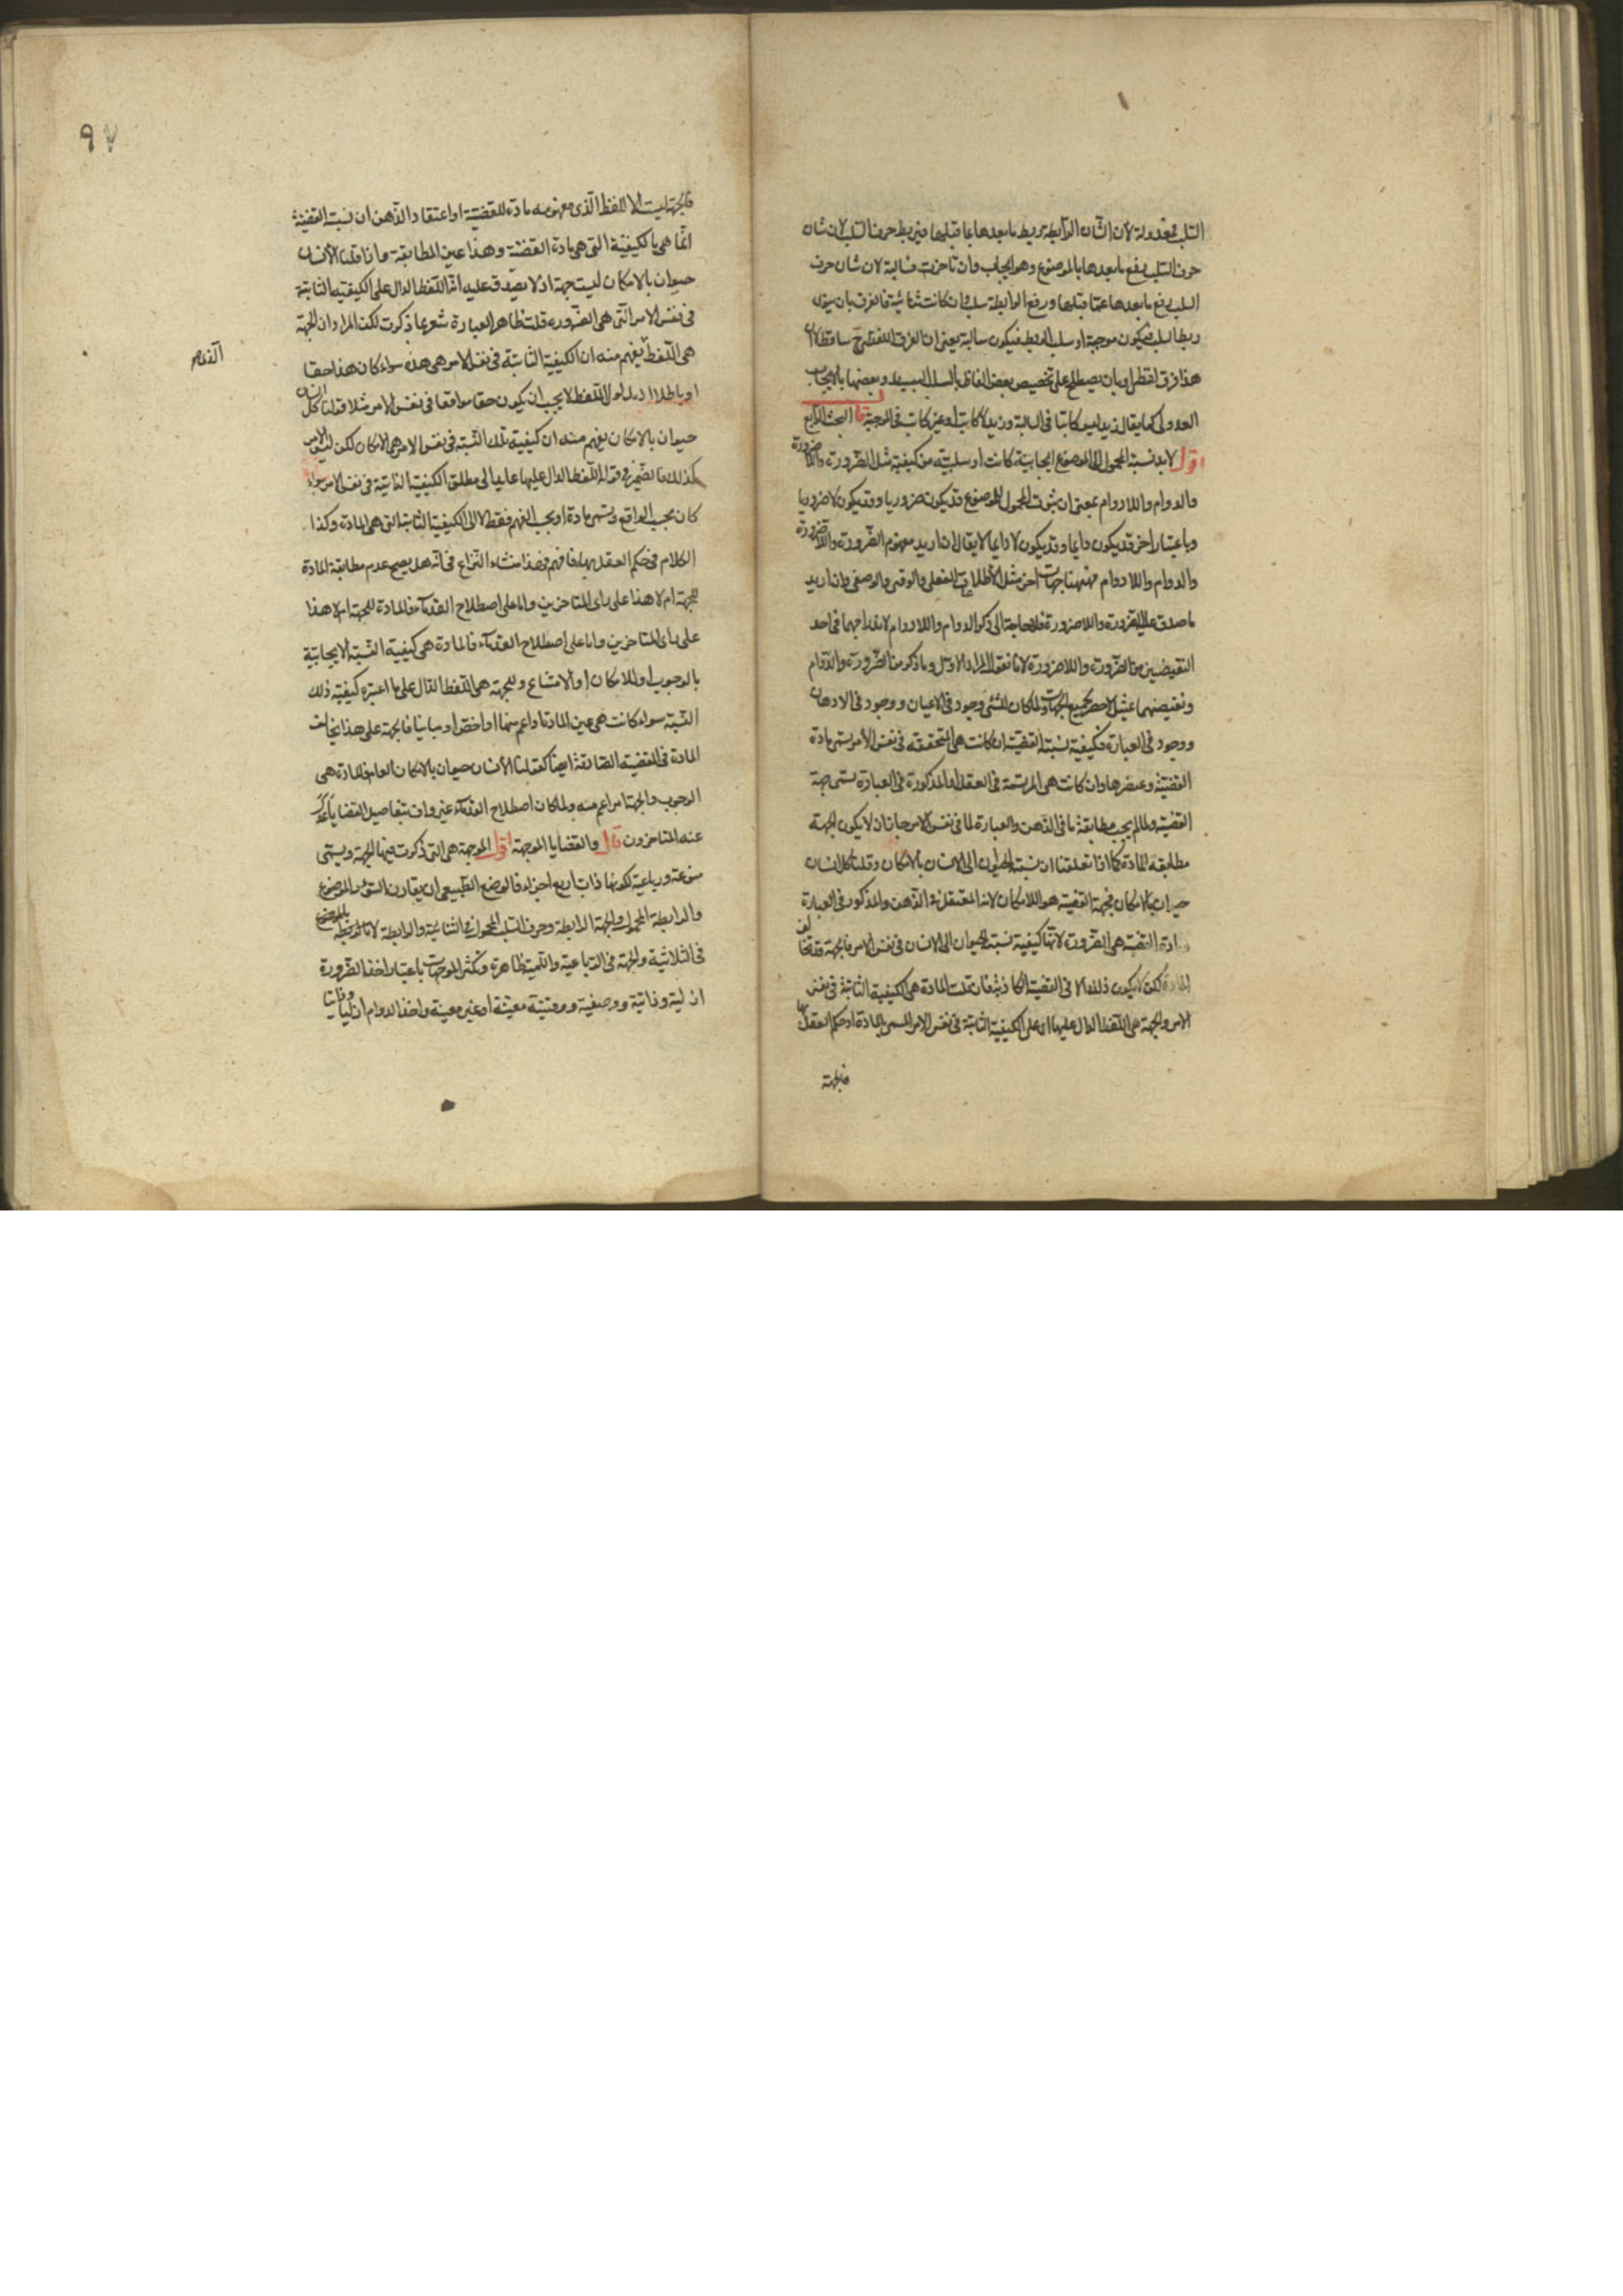 السلب فمعدولة لان شان الرابطة تربط ما بعدها بما قبلها فيربط حرف السلب لان شان
حرف السلب رفع ما بعدها بالموضوع وهو ايجاب وان تاخرت فسالبة لان شان حرف
السلب رفع ما بعدها عما قبلها ورفع الرابطة سلب وان كانت ثنائية فالفرق بان ينوى
ربط السلب فيكون موجبة او سلب الربط فيكون سالبة يعنى ان الفرق اللفظى ح ساقط الا ان
هذا فرق لفظى او بان يصطلح على تخصيص بعض الفاظ السلب بالسلب البسيط وبعضها بالايجاب
العدولى كما يقال زيد ليس كاتبا فى السالبة وزيد لا كاتب او غير كاتب فى الموجبة قال البحث الرابع
اقول لا بد لنسبة المحمول الى الموضوع ايجابية كانت او سلبية من كيفية مثل الضرورة واللاضرورة
والدوام واللادوام بمعنى ان ثبوت المحمول للموضوع قد يكون ضروريا وقد يكون لا ضروريا
وباعتبار اخر قد يكون دايما وقد يكون لا دايما لا يقال ان اريد مفهوم الضرورة واللاضرورة
والدوام واللادوام فههنا جهات اخر مثل الاطلاق الفعلى والوقتى والوصفى وان اريد
ما صدق عليه الضرورة واللاضرورة فلا حاجة الى ذكر الدوام واللادوام لاندراجهما فى احد
النقيضين من الضرورة واللاضرورة لانا نقول المراد الاول وما ذكر من الضرورة والدوام
ونقيضهما تمثيل لا حصر لجميع الجهات ولما كان للشئ وجود فى الاعيان ووجود فى الاذهان
ووجود فى العبارة فكيفية نسبة القضية ان كانت هى المتحققة فى نفس الأمر يسمى مادة
القضية وعنصرها وان كانت هى المرتسمة فى العقل او المذكورة فى العبارة يسمى جهة
القضية ولما لم يجب مطابقة ما فى الذهن والعبارة لما فى نفس الامر جاز ان لا يكون الجهة
مطابقة المادة كما اذا تعقلنا ان نسبة الحيوان الى الانسان بالامكان وقلنا كل انسان
حيوان بالامكان فجهة القضية هو اللا مكان لانه المتعقل فى الذهن والمذكور فى العبارة
ومادة القضية هى الضرورة لانها كيفية نسبة الحيوان الى الانسان فى نفس الامر فالجهة قد تخالف
المادة لكن لا يكون ذلك الا فى القضية الكاذبة فان قلت المادة هى الكيفية الثابتة فى نفس
الامر والجهة هى اللفظ الدال عليها اى على الكيفية الثابتة فى نفس الامر المسمى بالمادة او حكم العقل بها
فالجهة
٩٧
فالجهة ليست الا اللفظ الذى مفهومه مادة للقضية او اعتقاد الذهن ان نسبة القضية
انما هى بالكيفية التى هى مادة القضية وهذا عين المطابقة واذا قلنا الأنسان
حيوان بالامكان ليست جهة اذ لا يصدق عليه انه اللفظ الدال على الكيفية الثابتة
فى نفس الامر التى هى الضرورة قلت ظاهر العبارة يشعر بما ذكرت لكن المراد ان الجهة
هى اللفظ يفهم منه ان الكيفية الثابتة فى نفس الامر هى هذه سواء كان هذا حقا
او باطلا اذ مدلول اللفظ لا يجب ان يكون حقا موافقا فى نفس الامر مثلا قولنا كل انسان
حيوان بالامكان يفهم منه ان كيفية تلك النسبة فى نفس الامر هى الامكان لكن ليس الامر
كذلك فالضمير فى قوله اللفظ الدال عليها عايد الى مطلق الكيفية الثابتة فى نفس الامر سواء
كان بحسب الواقع ويسمى مادة او بحسب الفهم فقط لا الى الكيفية الثابتة التى هى المادة وكذا
الكلام فى حكم العقل بها فافهم فهذا منشاء النزاع فى انه هل يصح عدم مطابقة المادة
للجهة ام لا هذا على راى المتاخرين واما على اصطلاح القدماء فالمادة للجهة ام لا هذا
على راى المتاخرين واما على اصطلاح القدماء فالمادة هى كيفية النسبة الايجابية
بالوجوب او الامكان او الامتناع والجهة هى اللفظ الدال على ما اعتبره كيفية ذلك
النسبة سواء كانت هى عين المادة او اعم منها او اخص او مباينا فالجهة على هذا يخالف
المادة فى القضية الصادقة ايضا كقولنا الأنسان حيوان بالامكان العام فالمادة هى
الوجوب والجهة امر اعم منه ولما كان اصطلاح القدماء غير واف بتفاصيل القضايا عدل
عنه المتاخرون قال والقضايا الموجهة اقول الموجهة هى التى ذكرت فيها الجهة ويسمى
منوعة ورباعية لكونها ذات اربع اجزاء فالوضع الطبيعى ان يقارن السور الموضوع
والرابطة المحمول والجهة الرابطة وحرف السلب المحمول فى الثنائية والرابطة لانها لربطه بالموضوع
فى الثلاثية والجهة فى الرباعية والتسمية ظاهرة وتكثر الموجهات باعتبار اخذ الضرورة
ازلية وذاتية ووصفية ووقتية معينة او غير معينة واخذ الدوام ازليا وذاتيا